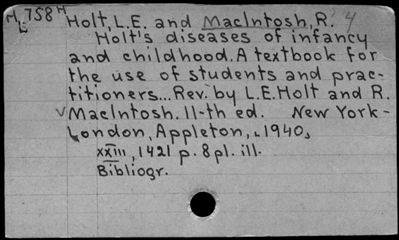 M 758 H Holt, L.E. and MacIntosh, R. 4
L
Holt's diseases of infancy
and childhood. A textbook for
the use of students and prac-
titioners... Rev. by L.E.Holt and R.
v MacIntosh. 11-th ed. New York-
London, Appleton, [1940]
XXIII, 1421 p. 8 pl. ill.
Bibliogr.